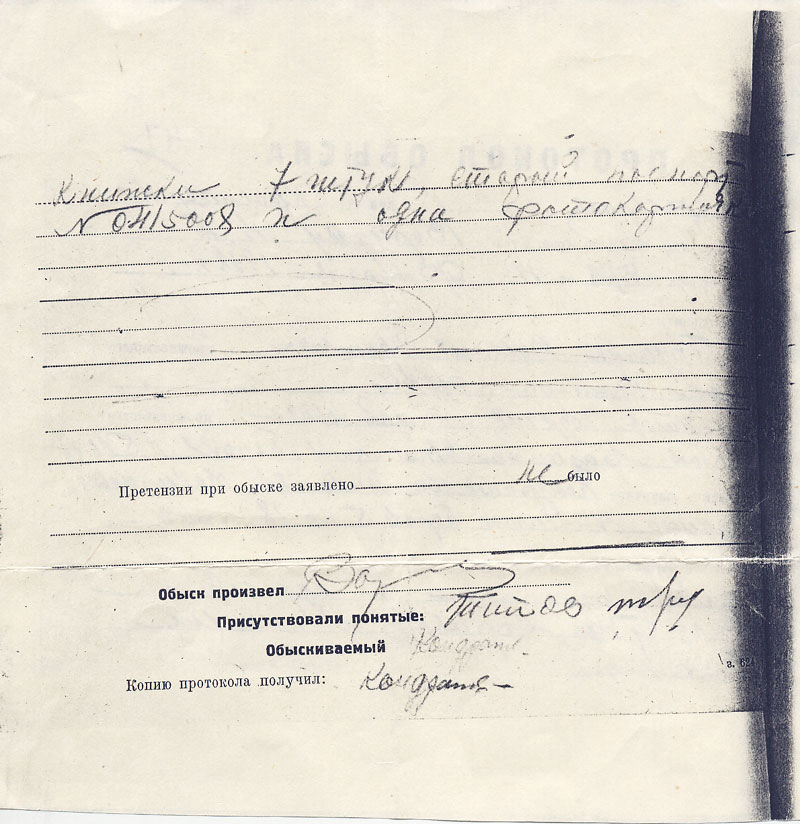 Книжки 7 штук, старый паспорт
№ 0415008 и одна фотокарточка
Претензии при обыске заявлено не было
Обыск произвел
Присутствовали понятые: Титов
Обыскиваемый Кондрат
Копию протокола получил: Кондрат